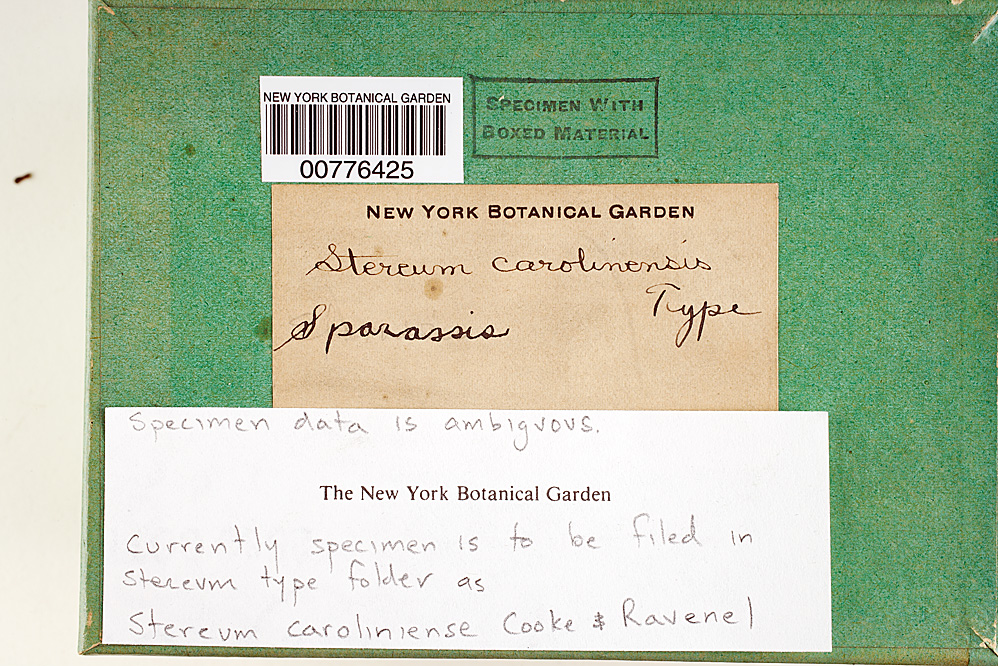 NEW YORK BOTANICAL GARDEN
00776425
SPECIMEN WITH
BOXED MATERIAL
NEW YORK BOTANICAL GARDEN
Stereum carolinensis
Type
Sparassis
Specimen data is ambiguous.
The New York Botanical Garden
Currently specimen is to be filed in
stereum type folder as
Stereum caroliniense Cooke & Ravenel